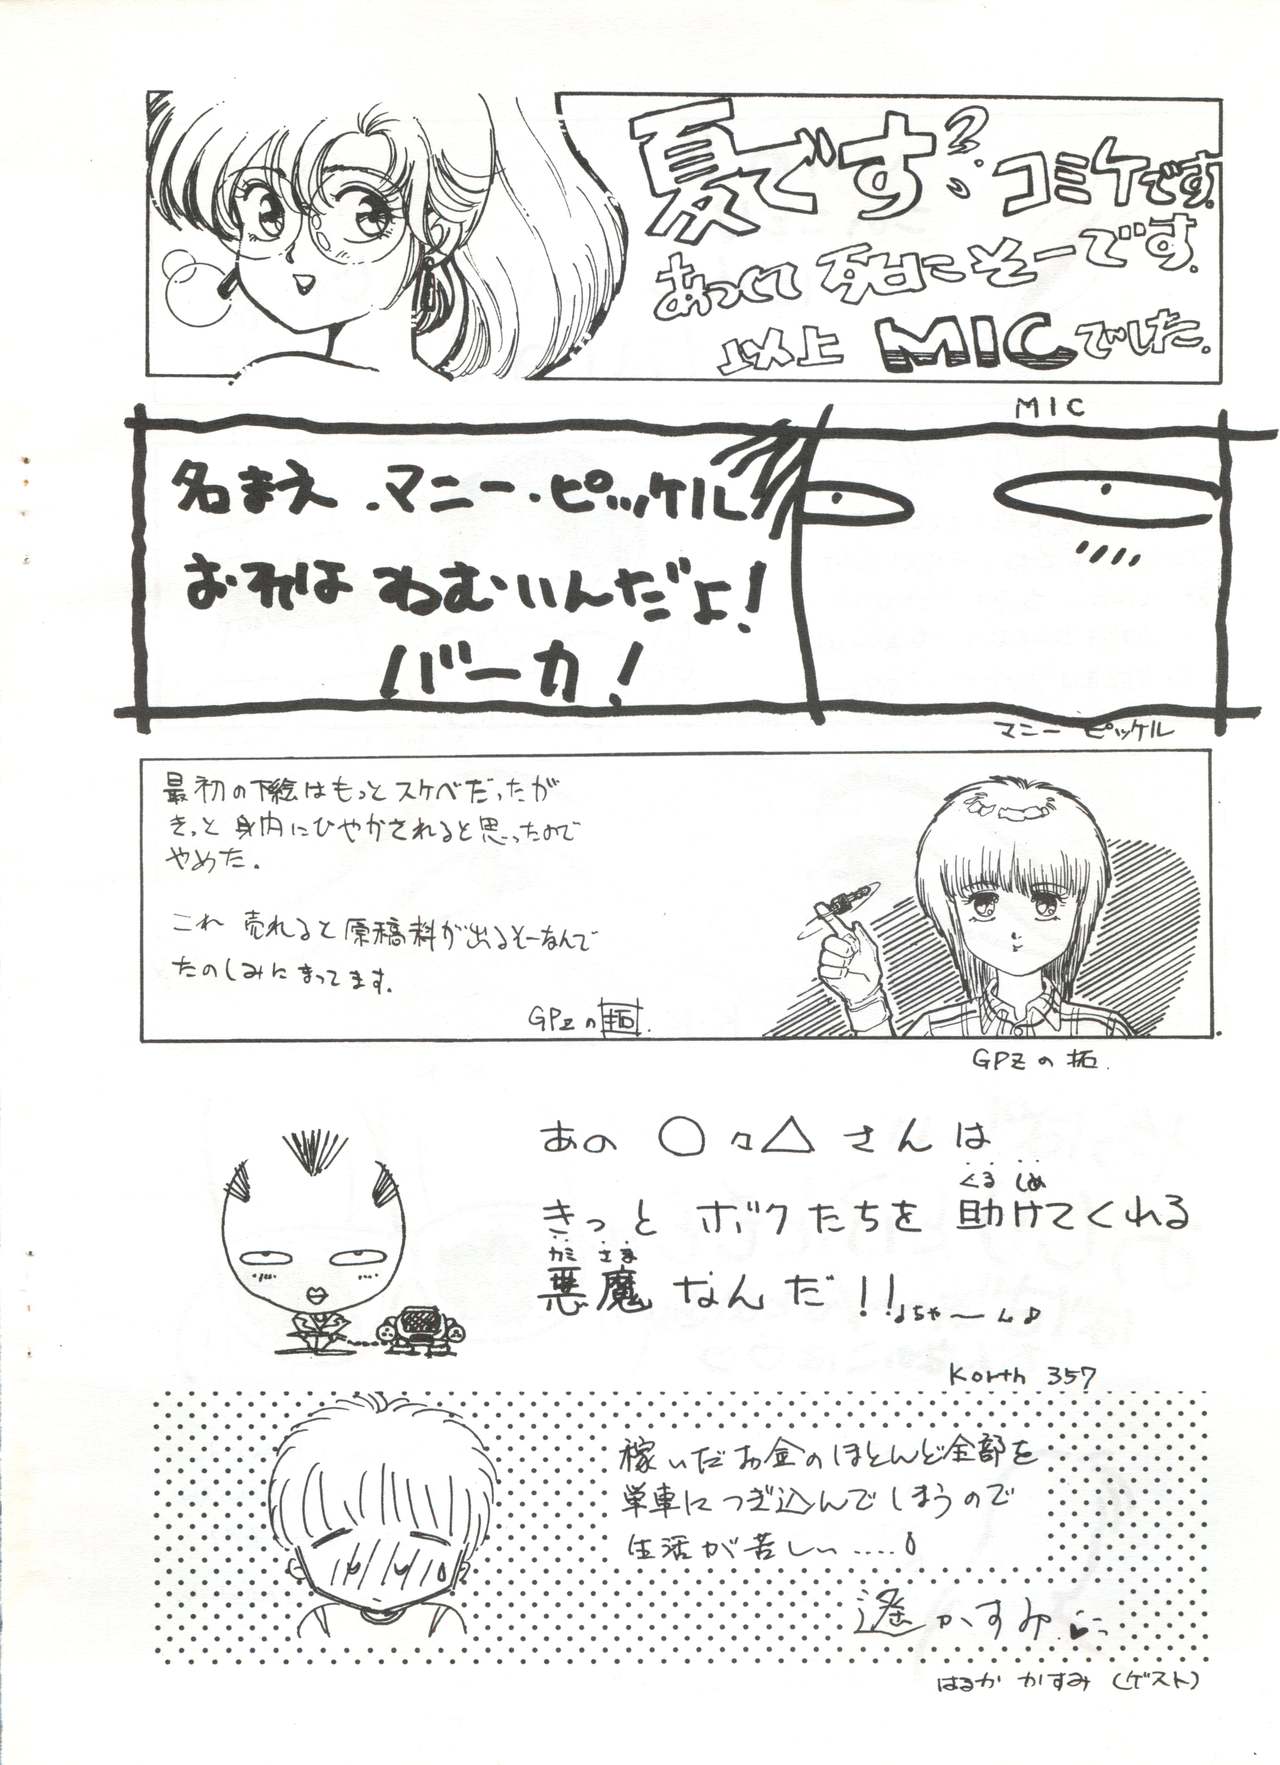 夏です。コミケです。
あつくて死にそーです。
以上MICでした。
MIC
名まえ.マニー・ピッケル
おれはねむいんだよ!
バーカ!
マニー ピッケル
最初の下絵はもっとスケベだったが
きっと身内にひやかされると思ったので
やめた。
これ 売れると原稿料が出るそーなんで
たのしみにまってます。
GPzの拓.
GPZの拓.
あの○々△さんは
くるしめ
きっと ボクたちを 助けてくれる
かみさま
悪魔なんだ!!
ちゃ〜ん♪
Korth 357
稼いだお金のほとんど全部を
単車につぎ込んでしまうので
生活が苦しい.....
遥かすみ
はるか かすみ (ゲスト)